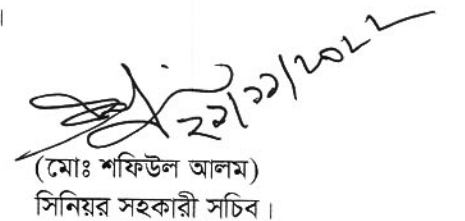 ।
২১/১১/২০২২
(মোঃ শফিউল আলম)
সিনিয়র সহকারী সচিব।